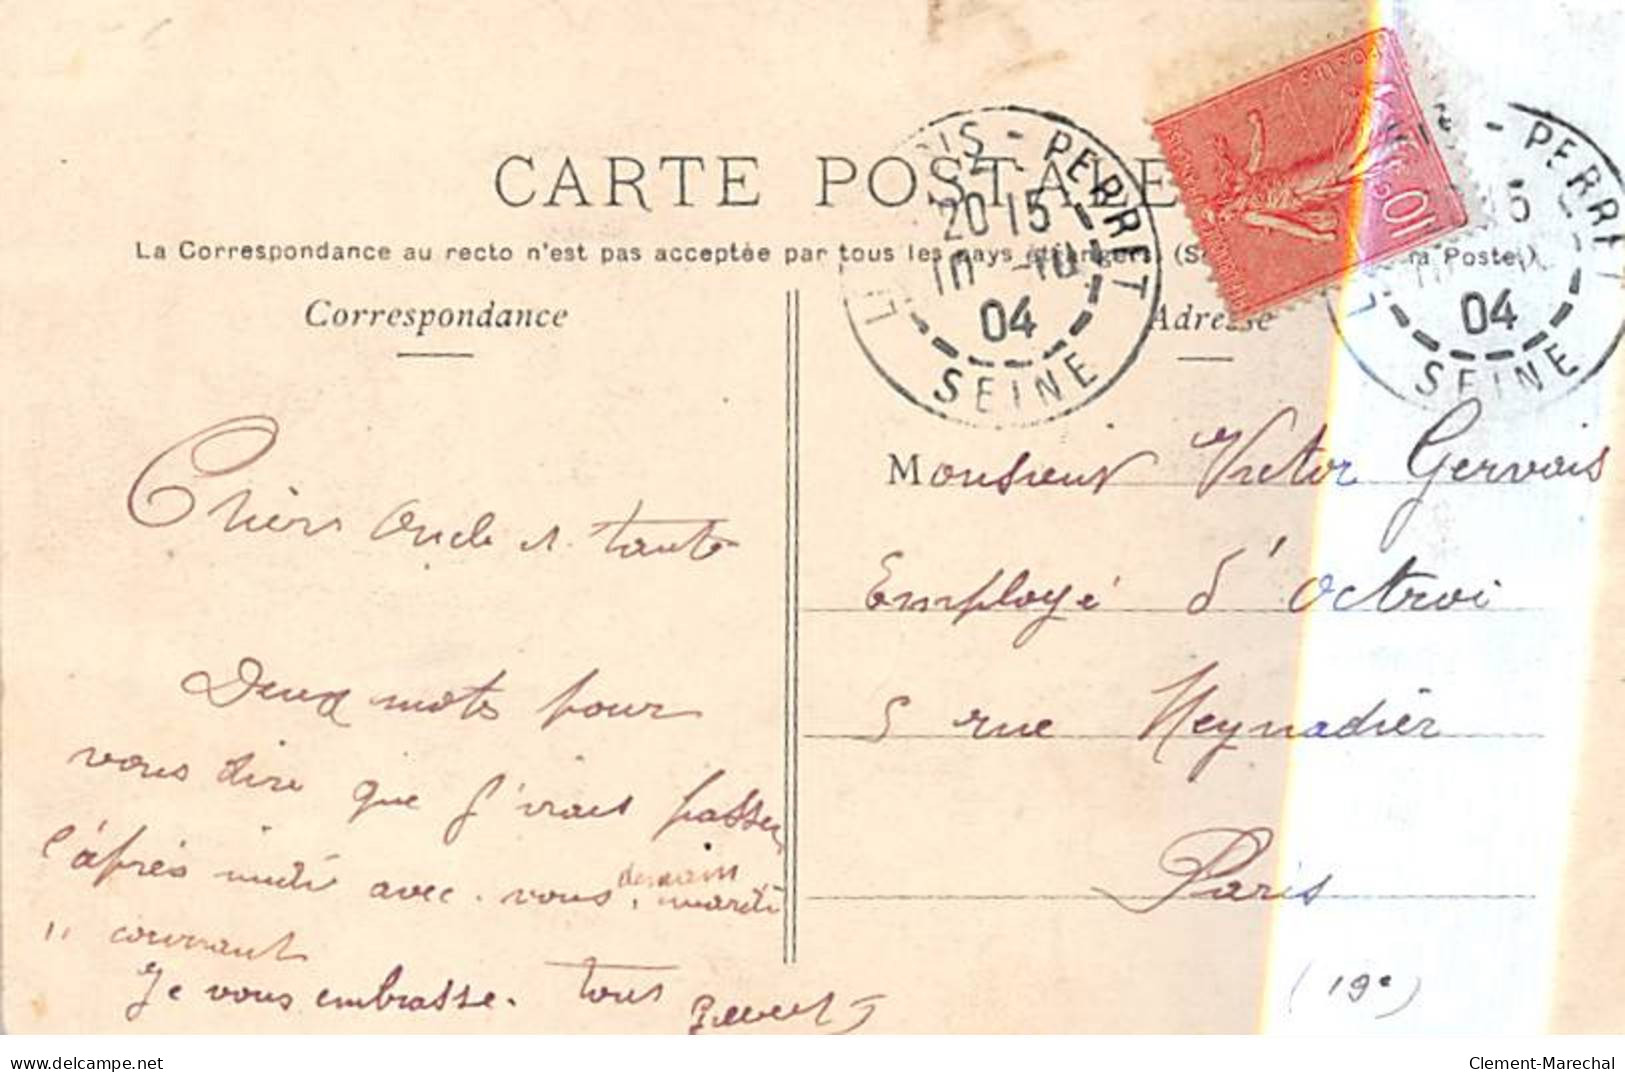 CARTE POSTALE
La Correspondance au recto n'est pas acceptée par tous les pays étrangers. Poste)
Correspondance
Adresse
PERRET
20 15
10 -10
04
SEINE
PERRET
04
SEINE
POSTES
10
Chers oncle et tante
Deux mots pour
vous dire que j'irais passer
l'après midi avec vous, demain mardi
11 courrant
Je vous embrasse. tous
Monsieur Victor Gervais
Employé d'octroi
5 rue Meynadier
Paris
(19e)
www.delcampe.net
Clement-Marechal